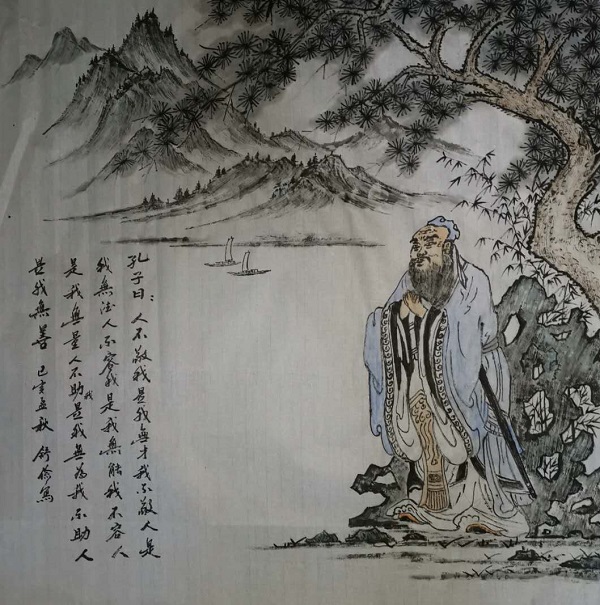 孔子曰：人不敬我是我無才我不敬人是
我無法人不容我是我無能我不容人
是我無量人不助我是我無為我不助人
是我無善 己亥孟秋 舒寫